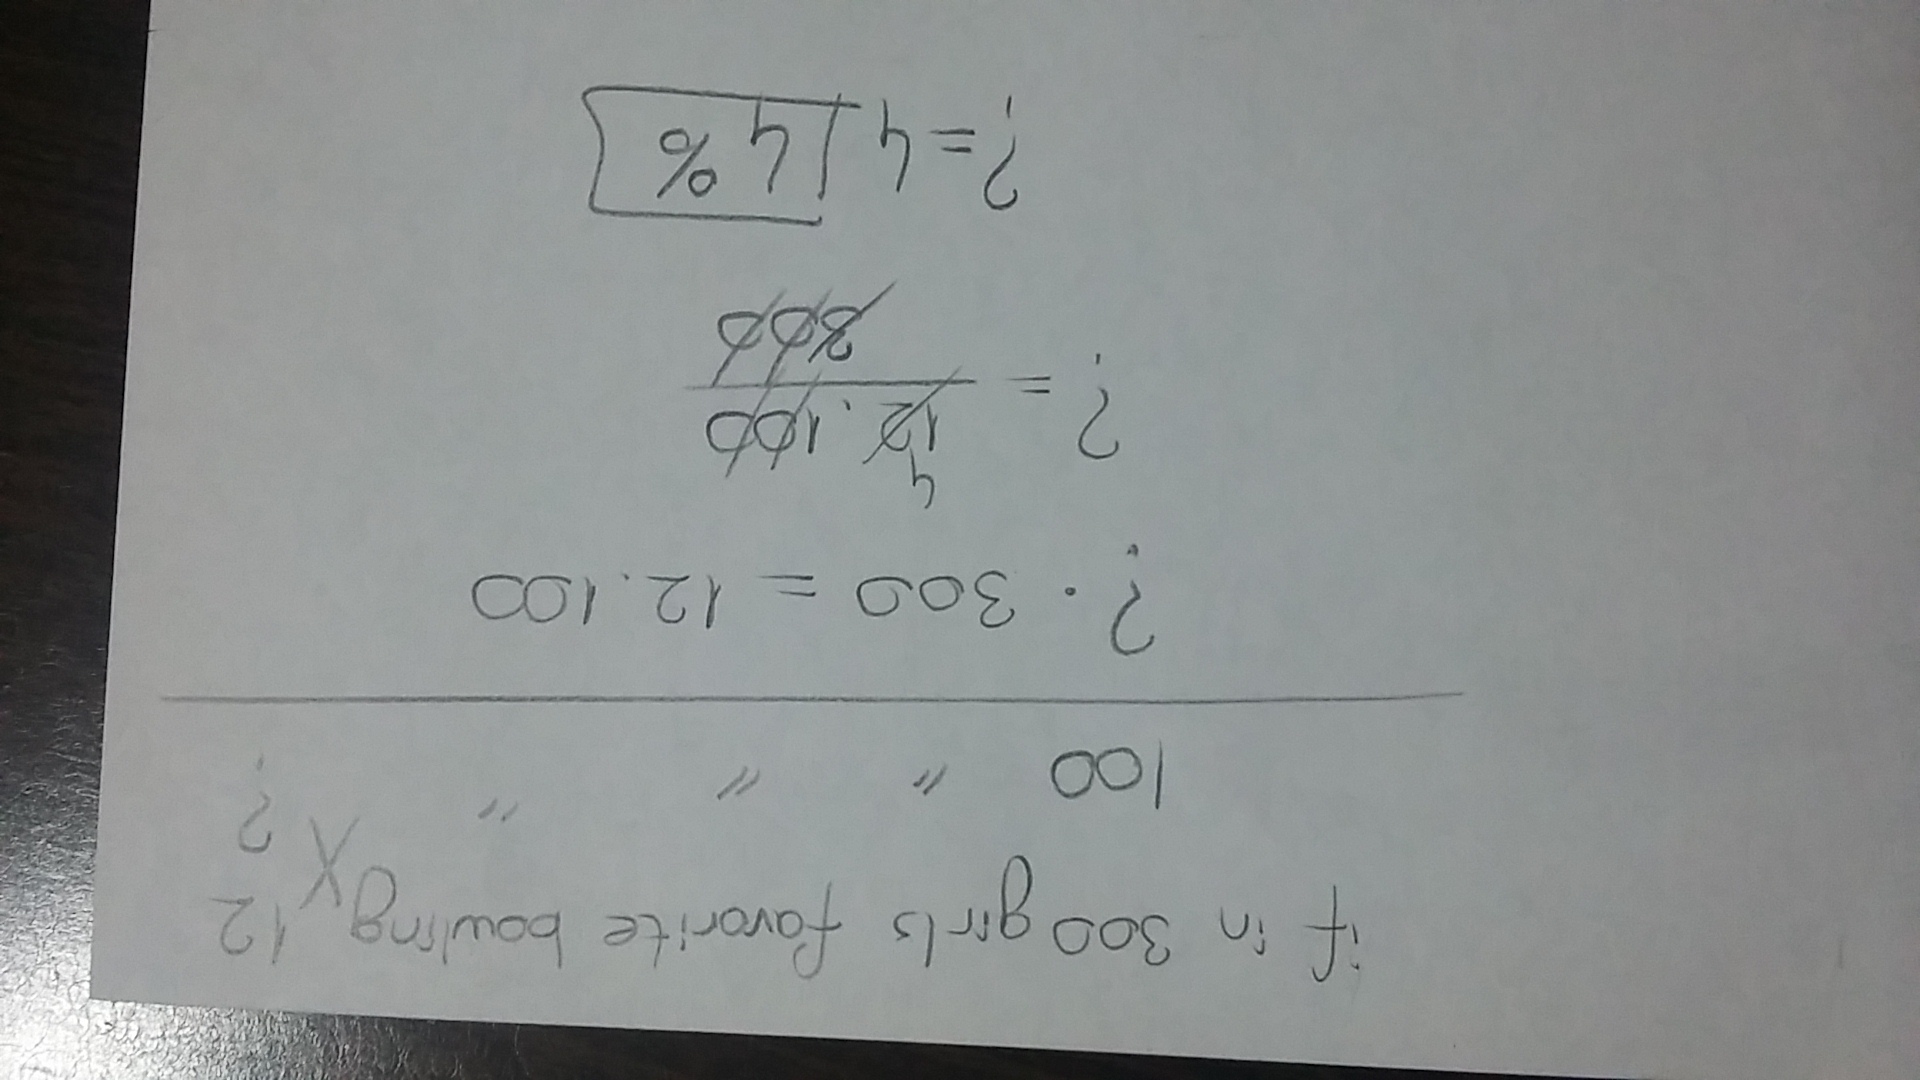 if in 300 girls favorite bowling 12
X
100 " " " ?
? . 300 = 12.100
4
? = 12.100
300
? = 4 4%